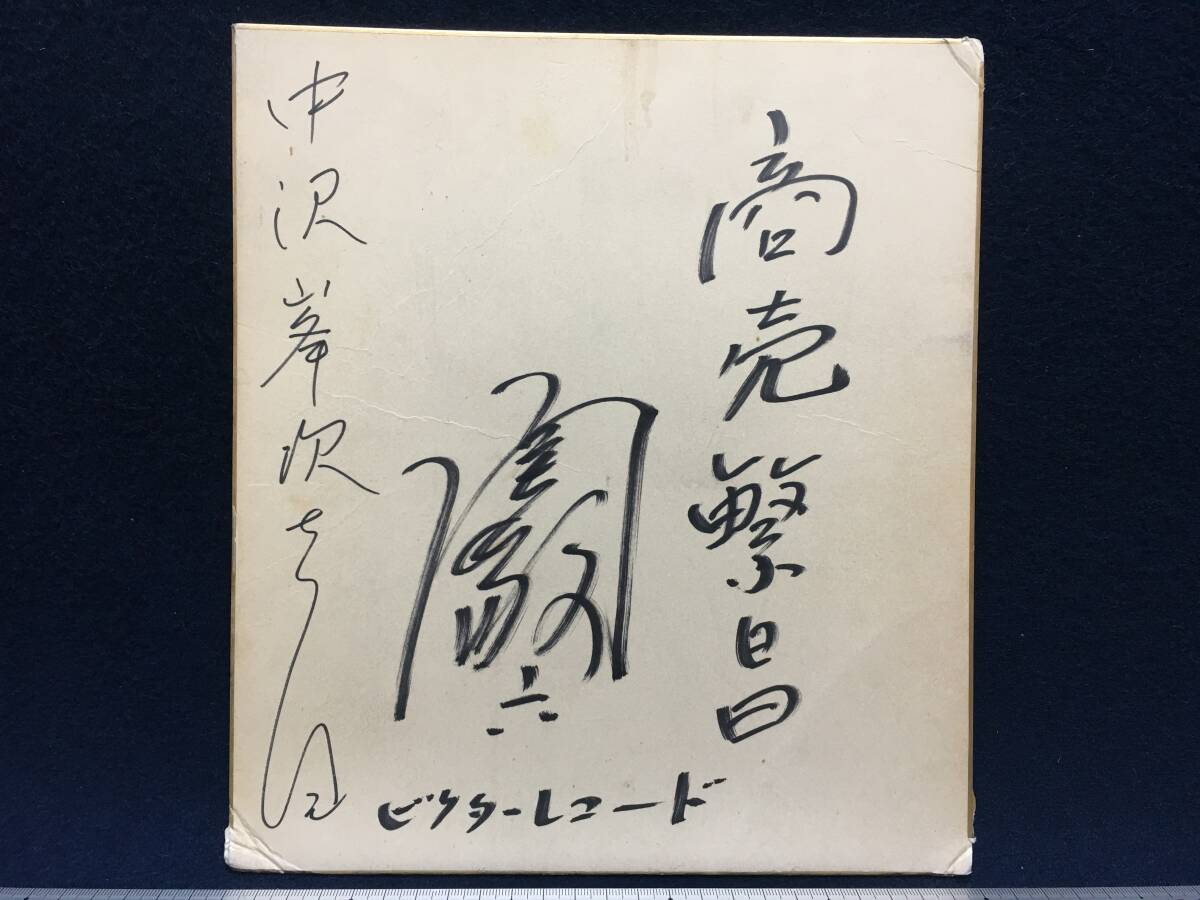 商売繁昌
関敬六
ビクターレコード
中沢峯次さん江